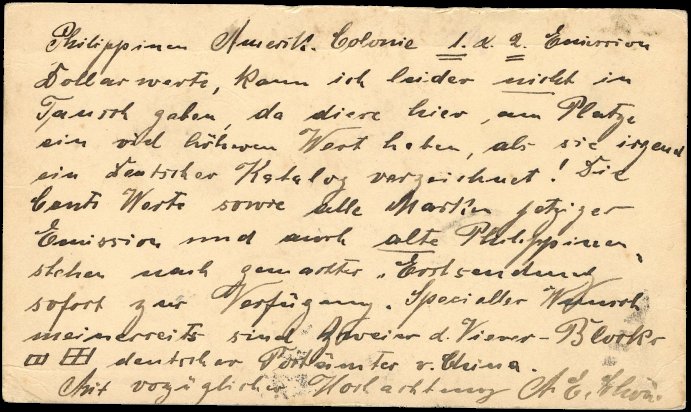 Philippinen Amerik. Colonie 1. u. 2. Emission
Dollarwerte, kann ich leider nicht in
Tausch geben, da diese hier, am Platze
ein viel höheren Wert haben, als sie irgend
ein Deutscher Katalog verzeichnet! Die
Cents Werte sowie alle Marken jetziger
Emission und auch alte Philippinen,
stehen nach gemachter „Erstsendung"
sofort zur Verfügung. Specieller Wunsch
meinerseits sind Zweier u. Vierer-Blocks
deutscher Postämter v. China.
Mit vorzüglicher Hochachtung A. E.